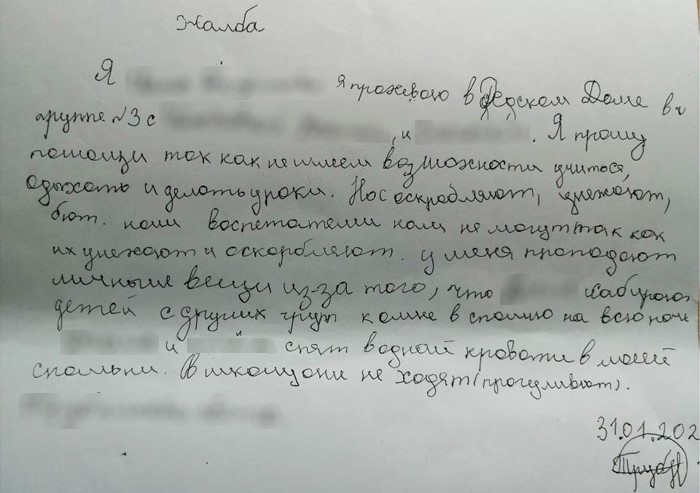 Жалба
Я я проживаю в Дедском Доме в
группе №3 с , и . Я прошу
помощи так как не имеем возможности учиться,
одыхать и делать уроки. Нас оскробляют, унежают,
бют. наши воспетатели нам не могут так как
их унежают и оскорбляют. у меня пропадают
личные вещи из-за того, что
детей с других груп комне в спалню на всю ночь
и спят водной кровати в моей
спальни. В школу они не ходят (прогуливают).
31.01.202